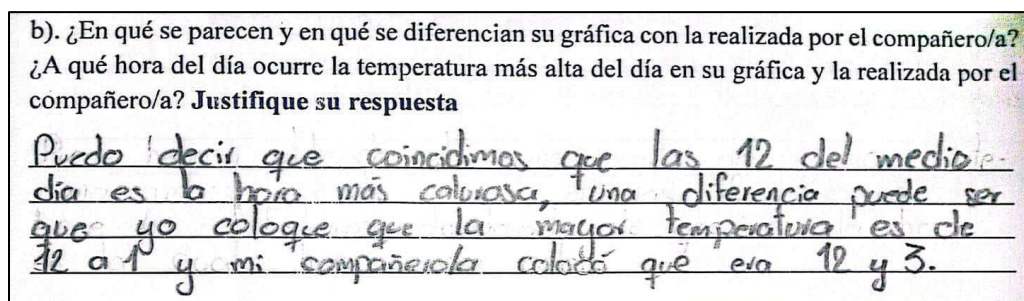 b). ¿En qué se parecen y en qué se diferencian su gráfica con la realizada por el compañero/a?
¿A qué hora del día ocurre la temperatura más alta del día en su gráfica y la realizada por el
compañero/a? Justifique su respuesta
Puedo decir que coincidimos que las 12 del medio
día es la hora más calurosa, una diferencia puede ser
que yo coloque que la mayor temperatura es de
12 a 1 y mi compañero/a colocó que era 12 y 3.